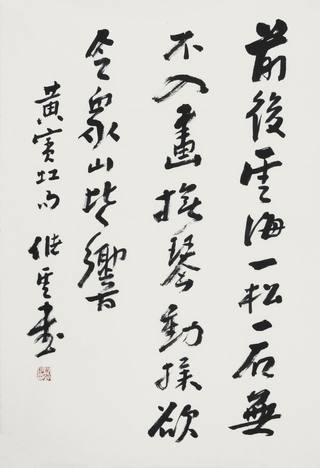 前後雲海一松一石無
不入畫撫琴動操欲
令衆山皆響
黄賓虹句 雲書